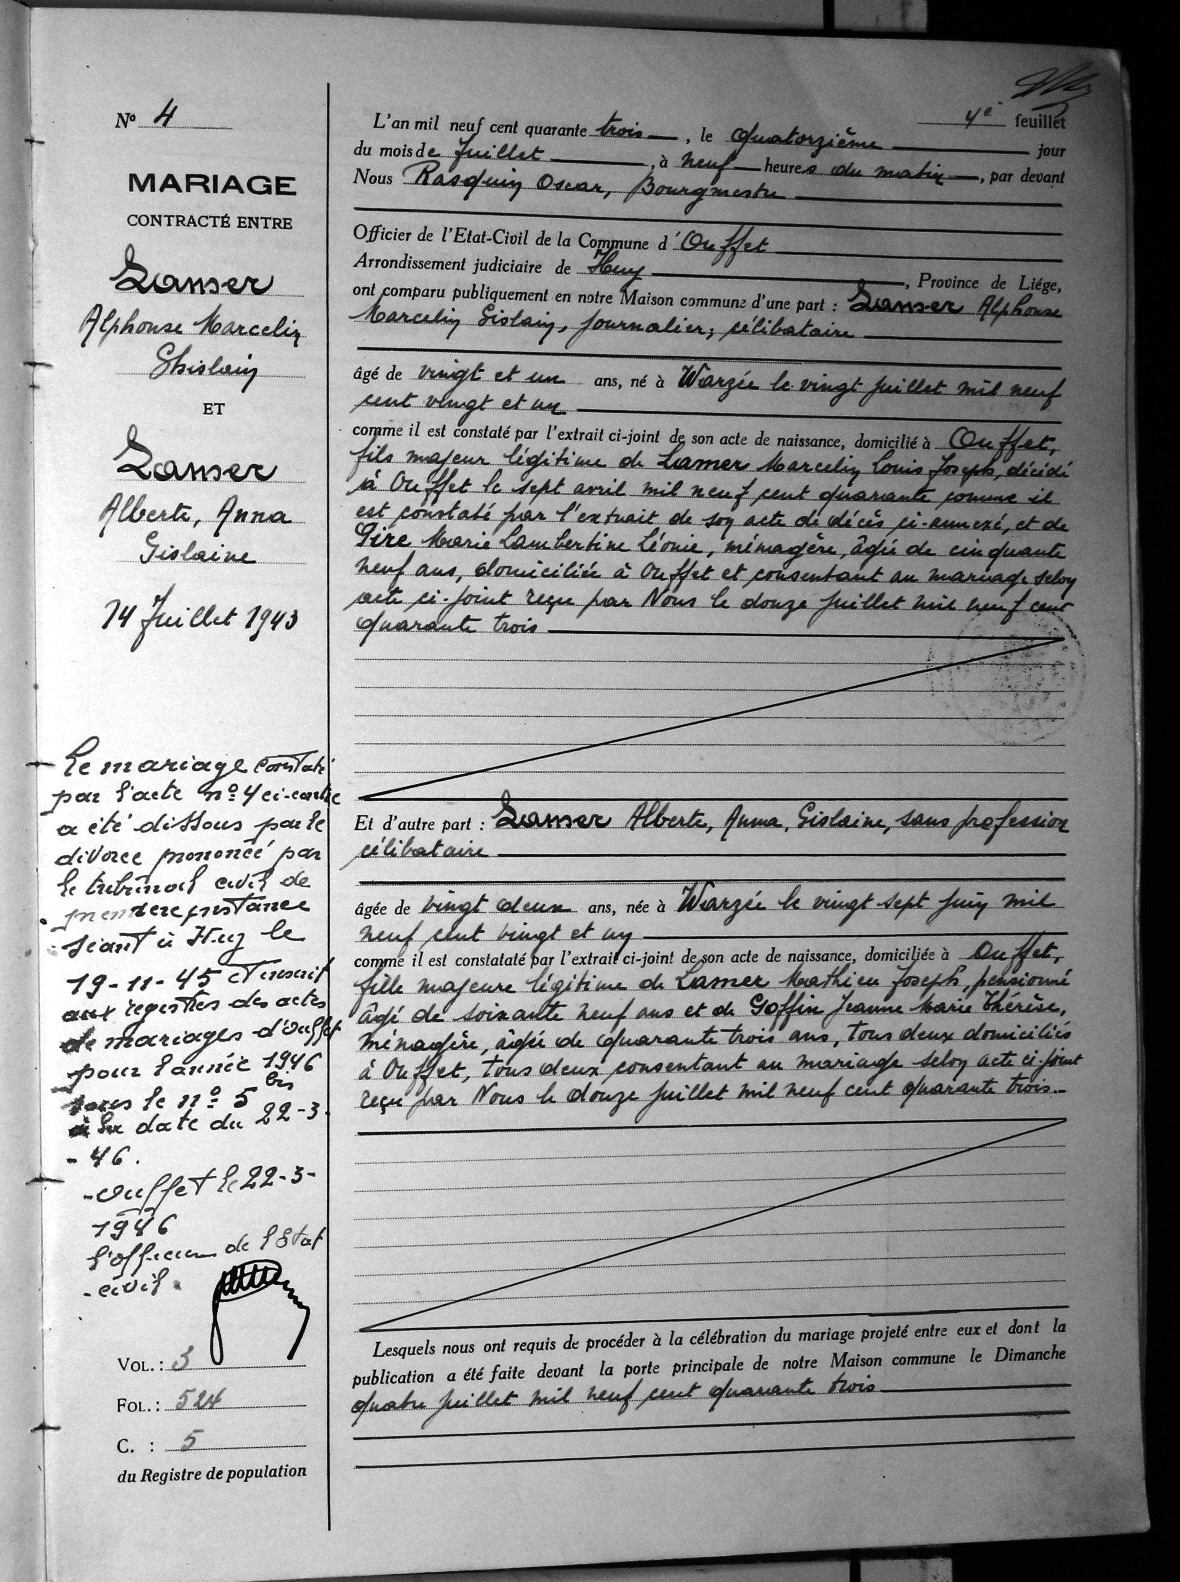 4e feuillet
Nº 4
MARIAGE
CONTRACTÉ ENTRE
Lamser
Alphonse Marcelin
Ghislain
ET
Lamser
Alberte, Anna
Gislaine
14 Juillet 1943
Le mariage constaté
par l'acte nº 4 ci-contre
a été dissous par le
divorce prononcé par
le tribunal civil de
première instance
séant à Huy le
19-11-45 et inscrit
aux registres des actes
de mariages d'Ouffet
pour l'année 1946
sous le nº 5 bis
à la date du 22-3-
-46.
-Ouffet le 22-3-
1946
l'officier de l'Etat
-civil.
VOL. : 3
FOL. : 524
C. : 5
du Registre de population
L'an mil neuf cent quarante trois, le quatorzième jour
du mois de Juillet, à neuf heures du matin, par devant
Nous Rasquin Oscar, Bourgmestre
Officier de l'Etat-Civil de la Commune d'Ouffet
Arrondissement judiciaire de Huy, Province de Liége,
ont comparu publiquement en notre Maison commune d'une part : Lamser Alphonse
Marcelin Gislain, journalier, célibataire
âgé de vingt et un ans, né à Warzée le vingt juillet mil neuf
cent vingt et un
comme il est constaté par l'extrait ci-joint de son acte de naissance, domicilié à Ouffet,
fils majeur légitime de Lamser Marcelin Louis Joseph, décédé
à Ouffet le sept avril mil neuf cent quarante comme il
est constaté par l'extrait de son acte de décès ci-annexé, et de
Pire Marie Lambertine Léonie, ménagère, âgée de cinquante
neuf ans, domiciliée à Ouffet et consentant au mariage selon
acte ci-joint reçu par Nous le douze juillet mil neuf cent
quarante trois
Et d'autre part : Lamser Alberte, Anna, Gislaine, sans profession
célibataire
âgée de vingt deux ans, née à Warzée le vingt sept juin mil
neuf cent vingt et un
comme il est constataté par l'extrait ci-joint de son acte de naissance, domiciliée à Ouffet,
fille majeure légitime de Lamser Mathieu Joseph, pensionné
âgé de soixante neuf ans et de Goffin Jeanne Marie Thérèse,
ménagère, âgée de quarante trois ans, tous deux domiciliés
à Ouffet, tous deux consentant au mariage selon acte ci-joint
reçu par Nous le douze juillet mil neuf cent quarante trois
Lesquels nous ont requis de procéder à la célébration du mariage projeté entre eux et dont la
publication a été faite devant la porte principale de notre Maison commune le Dimanche
quatre juillet mil neuf cent quarante trois